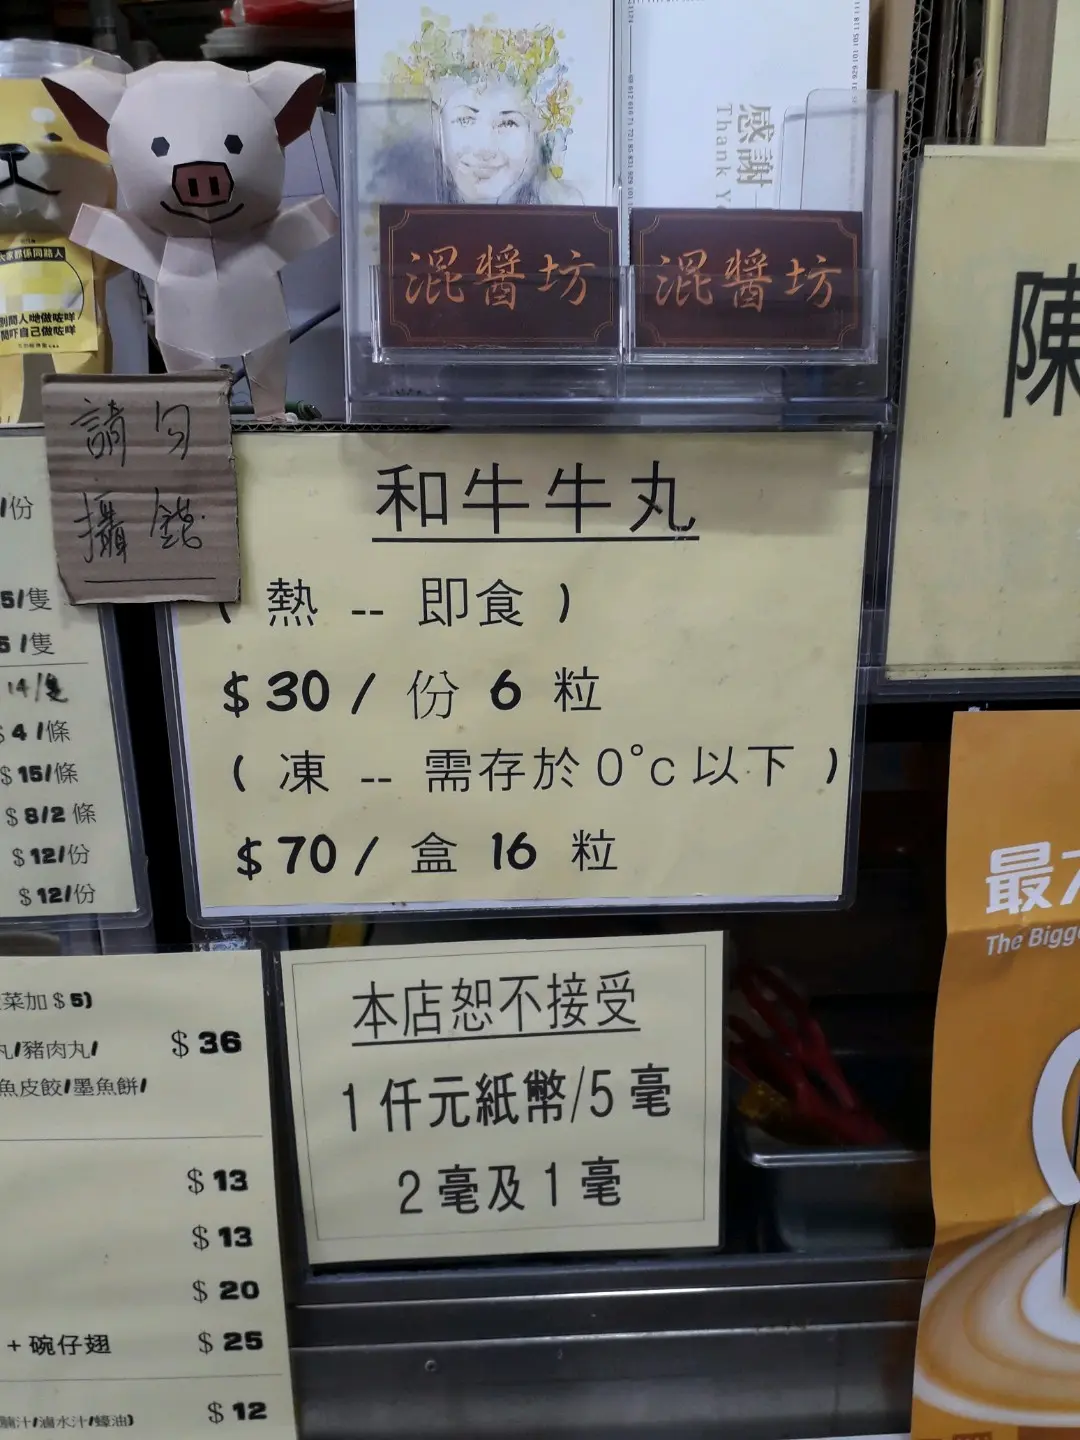 感謝
Thank Y
混醬坊
混醬坊
大家都係同路人
別問人哋做咗咩
問吓自己做咗咩
請勿
攝鏡
陳
和牛牛丸
( 熱 -- 即食 )
$30 / 份 6 粒
( 凍 -- 需存於 0°c 以下 )
$70 / 盒 16 粒
/份
5/隻
5/隻
14/隻
$4/條
$15/條
$8/2 條
$12/份
$12/份
本店恕不接受
1仟元紙幣/5毫
2毫及1毫
菜加$5)
丸/豬肉丸/ $36
魚皮餃/墨魚餅/
$13
$13
$20
+ 碗仔翅 $25
腩汁/滷水汁/蠔油) $12
最
The Bigg